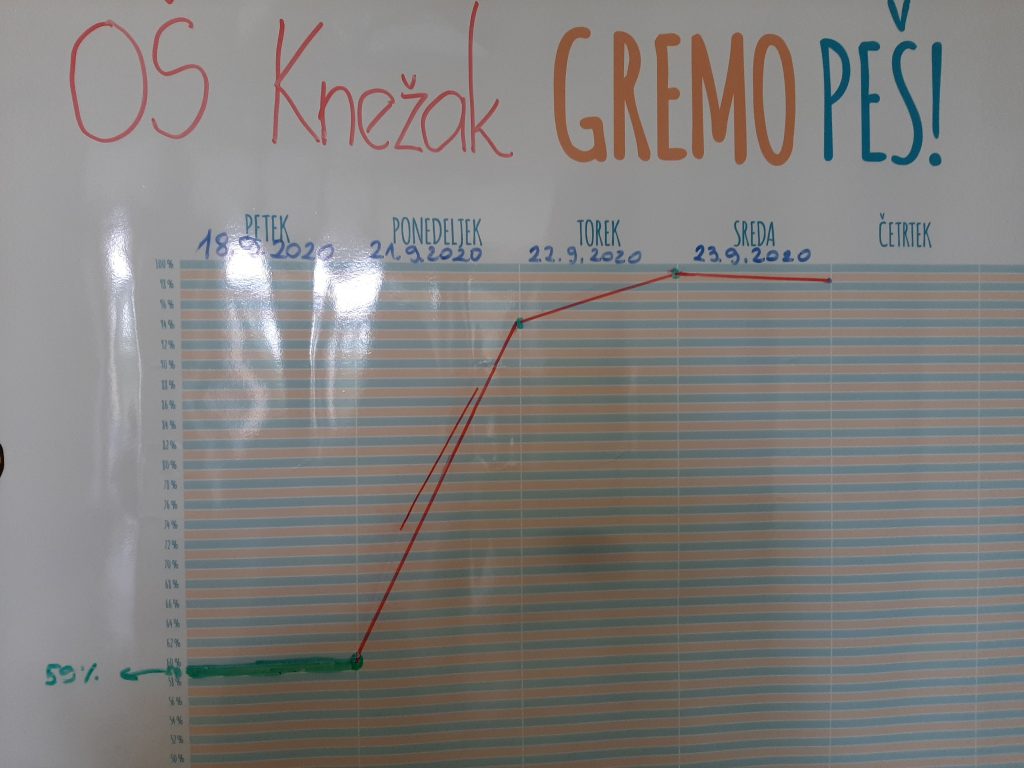 OŠ Knežak GREMO PEŠ!
PETEK PONEDELJEK TOREK SREDA ČETRTEK
18.9.2020 21.9.2020 22.9.2020 23.9.2020
100 %
98 %
96 %
94 %
92 %
90 %
88 %
86 %
84 %
82 %
80 %
78 %
76 %
74 %
72 %
70 %
68 %
66 %
64 %
62 %
60 %
59 %
58 %
56 %
54 %
52 %
50 %